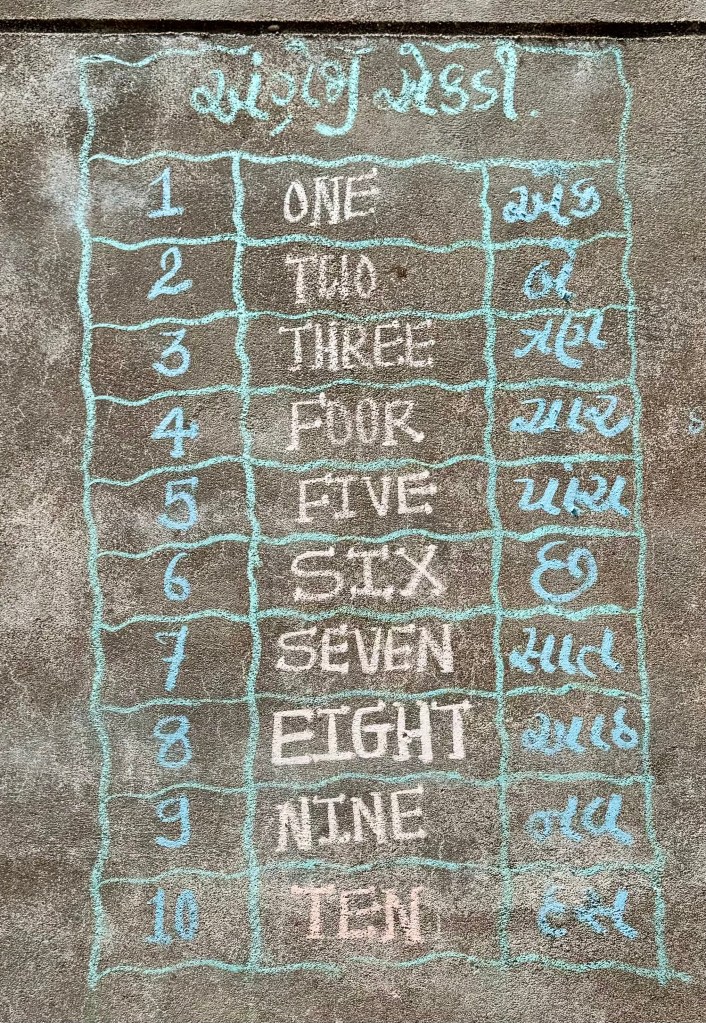 અંગ્રેજી એકડી.
1 ONE એક
2 TWO બે
3 THREE ત્રણ
4 FOUR ચાર
5 FIVE પાંચ
6 SIX છ
7 SEVEN સાત
8 EIGHT આઠ
9 NINE નવ
10 TEN દસ